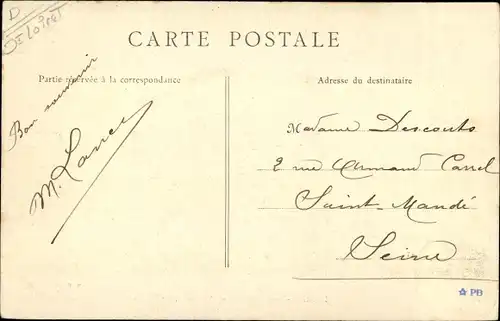 D
Dt Loiret
CARTE POSTALE
Partie réservée à la correspondance
Adresse du destinataire
Bon souvenir
M. Lance
Madame Descouts
2 rue Armand Carrel
Saint-Mandé
Seine
PB